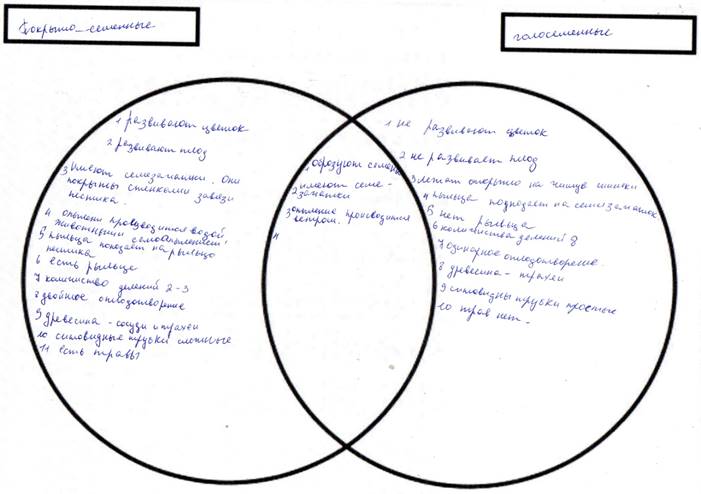 Покрыто-семенные
голосеменные
1 развивают цветок
2 развивают плод
3 имеют семезачатки. Они
покрыты стенками завязи
пестика.
4 опылени производится водой,
животными самоопылением
5 пыльца попадает на рыльцо
пестика
6 есть рыльце
7 количиство делений 2-3
8 двойное оплодотворение
9 древесина - сосуды и трахеи
10 ситовидные трубки сложные
11 есть травы
1 образуют семена
2 имеют семе-
зачатки
3 опыление производится
ветром.
4
1 не развивают цветок
2 не развивает плод
3 лежат открыто на чешуе шишки
4 пыльца попадает на семезачаток
5 нет рыльца
6 количиства делений 8
7 одинарное оплодотворение
8 древесина - трахеи
9 ситовидны трубки простые
10 трав нет -